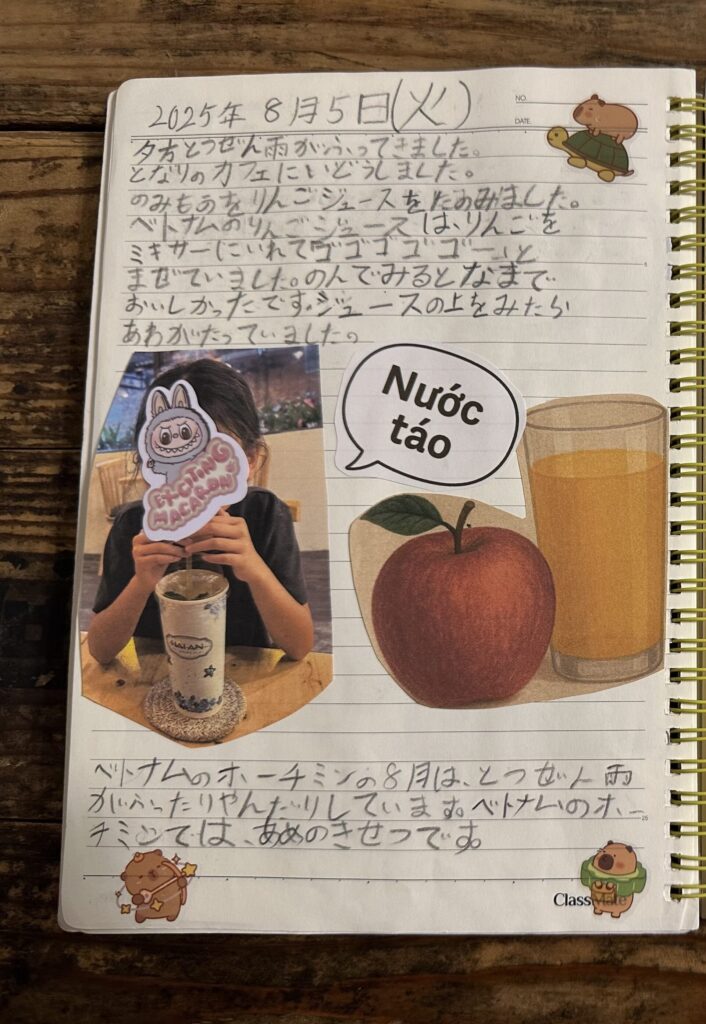 NO.
DATE
2025年 8月5日(火)
夕方とつぜん雨がふってきました。
となりのカフェにいどうしました。
のみものをりんごジュースをたのみました。
ベトナムのりんごジュースは、りんごを
ミキサーにいれて「ゴゴゴゴゴー」と
まぜていました。のんでみるとなまで
おいしかったです。ジュースの上をみたら
あわがたっていました。
EXCITING
MACARON
Nước
táo
ベトナムのホーチミンの8月は、とつぜん雨
がふったりやんだりしています。ベトナムのホー
チミンでは、あめのきせつです。
ClassMate